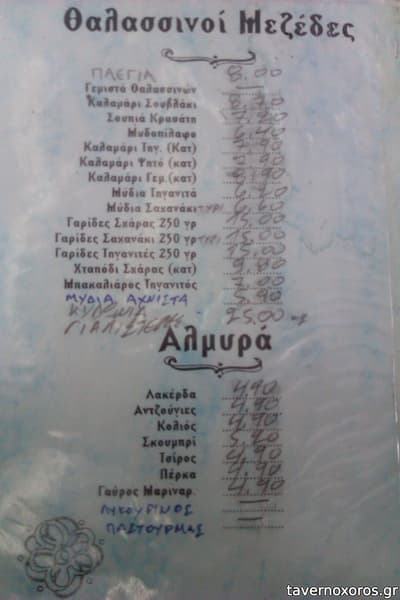 Θαλασσινοί Μεζέδες
ΠΛΕΓΙΑ 8.00
Γεμιστά Θαλασσινών —
Καλαμάρι Σουβλάκι
Σουπιά Κρασάτη 7.20
Μυδοπίλαφο 6.40
Καλαμάρι Τηγ. (Κατ)
Καλαμάρι Ψητό (κατ)
Καλαμάρι Γεμ.(κατ)
Μύδια Τηγανιτά
Μύδια Σαχανάκι ΤΥΡΙ
Γαρίδες Σχάρας 250 γρ
Γαρίδες Σαχανάκι 250 γρ ΤΥΡΙ
Γαρίδες Τηγανιτές 250 γρ 15.00
Χταπόδι Σχάρας (κατ)
Μπακαλιάρος Τηγανιτός 7.00
ΜΥΔΙΑ ΑΧΝΙΣΤΑ 5.90
ΓΙΑΛΙΣΤΕΡΕΣ 25.00
Αλμυρά
Λακέρδα 4.90
Αντζούγιες 4.90
Κολιός 4.90
Σκουμπρί 5.20
Τσίρος 4.90
Πέρκα 4.90
Γαύρος Μαριναρ. 4.90
ΛΥΚΟΥΡΙΝΟΣ —
ΠΑΣΤΟΥΡΜΑΣ —
tavernoxoros.gr